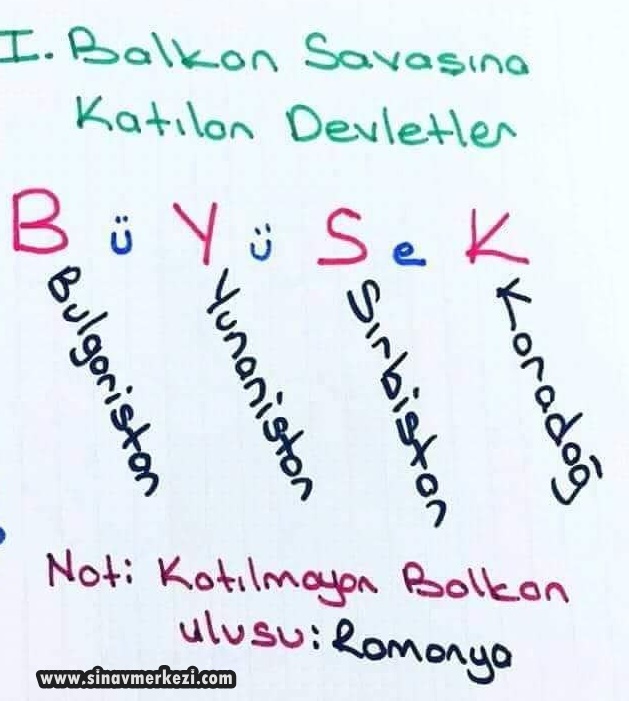 I. Balkan Savaşına
Katılan Devletler
B ü Y ü S e K
Bulgaristan
Yunanistan
Sırbistan
Karadağ
Not: Katılmayan Balkan
ulusu: Romanya
www.sinavmerkezi.com